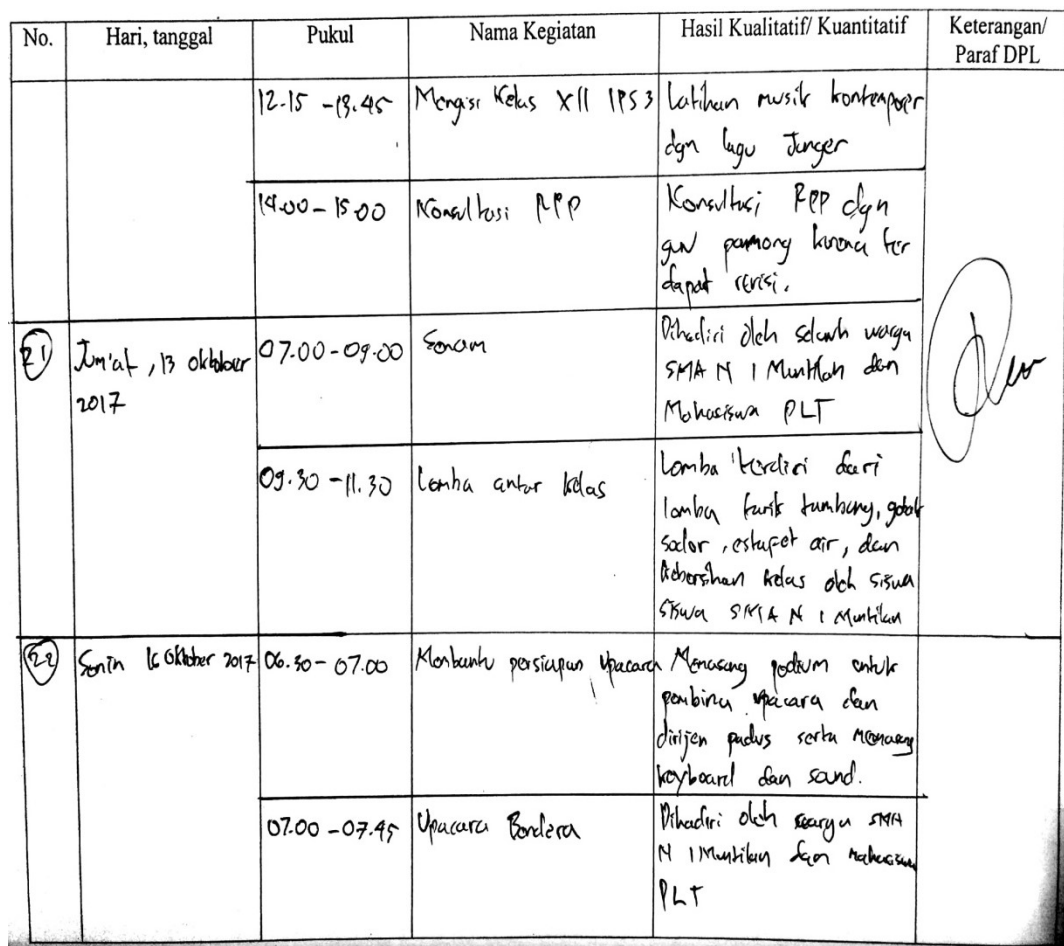 No. Hari, tanggal Pukul Nama Kegiatan Hasil Kualitatif/ Kuantitatif Keterangan/
Paraf DPL
12.15 - 13.45 Mengisi Kelas XII IPS 3 Latihan musik kontemporer
dgn lagu Janger
14.00 - 15.00 Konsultasi RPP Konsultasi RPP dgn
guru pamong karena ter
dapat revisi.
21 Jum'at, 13 oktober
2017 07.00 - 09.00 Senam Dihadiri oleh seluruh warga
SMA N 1 Muntilan dan
Mahasiswa PLT
09.30 - 11.30 Lomba antar kelas Lomba terdiri dari
lomba tarik tambang, gobak
sodor, estafet air, dan
kebersihan kelas oleh siswa
siswa SMA N 1 Muntilan
22 Senin 16 Oktober 2017 06.30 - 07.00 Membantu persiapan Upacara Memasang podium untuk
pembina upacara dan
dirijen padus serta memasang
keyboard dan sound.
07.00 - 07.45 Upacara Bendera Dihadiri oleh warga SMA
N 1 Muntilan dan mahasiswa
PLT